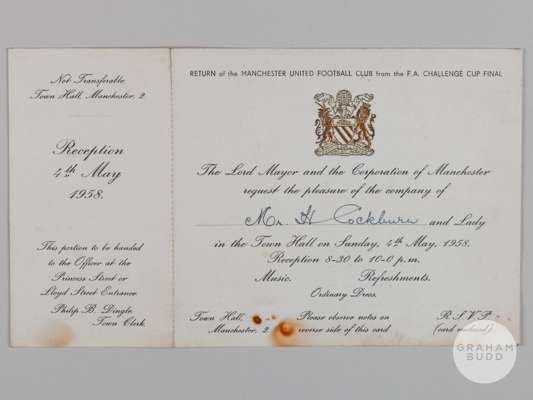 Not Transferable.
Town Hall, Manchester, 2.
Reception
4th May
1958.
This portion to be handed
to the Officer at the
Princess Street or
Lloyd Street Entrance.
Philip B. Dingle,
Town Clerk.
RETURN of the MANCHESTER UNITED FOOTBALL CLUB from the F.A. CHALLENGE CUP FINAL
The Lord Mayor and the Corporation of Manchester
request the pleasure of the company of
Mr. H Cockburn and Lady
in the Town Hall on Sunday, 4th May, 1958.
Reception 8-30 to 10-0 p.m.
Music. Refreshments.
Ordinary Dress.
Town Hall,
Manchester, 2.
Please observe notes on
reverse side of this card
R.S.V.P.
(card enclosed)
GRAHAM
BUDD